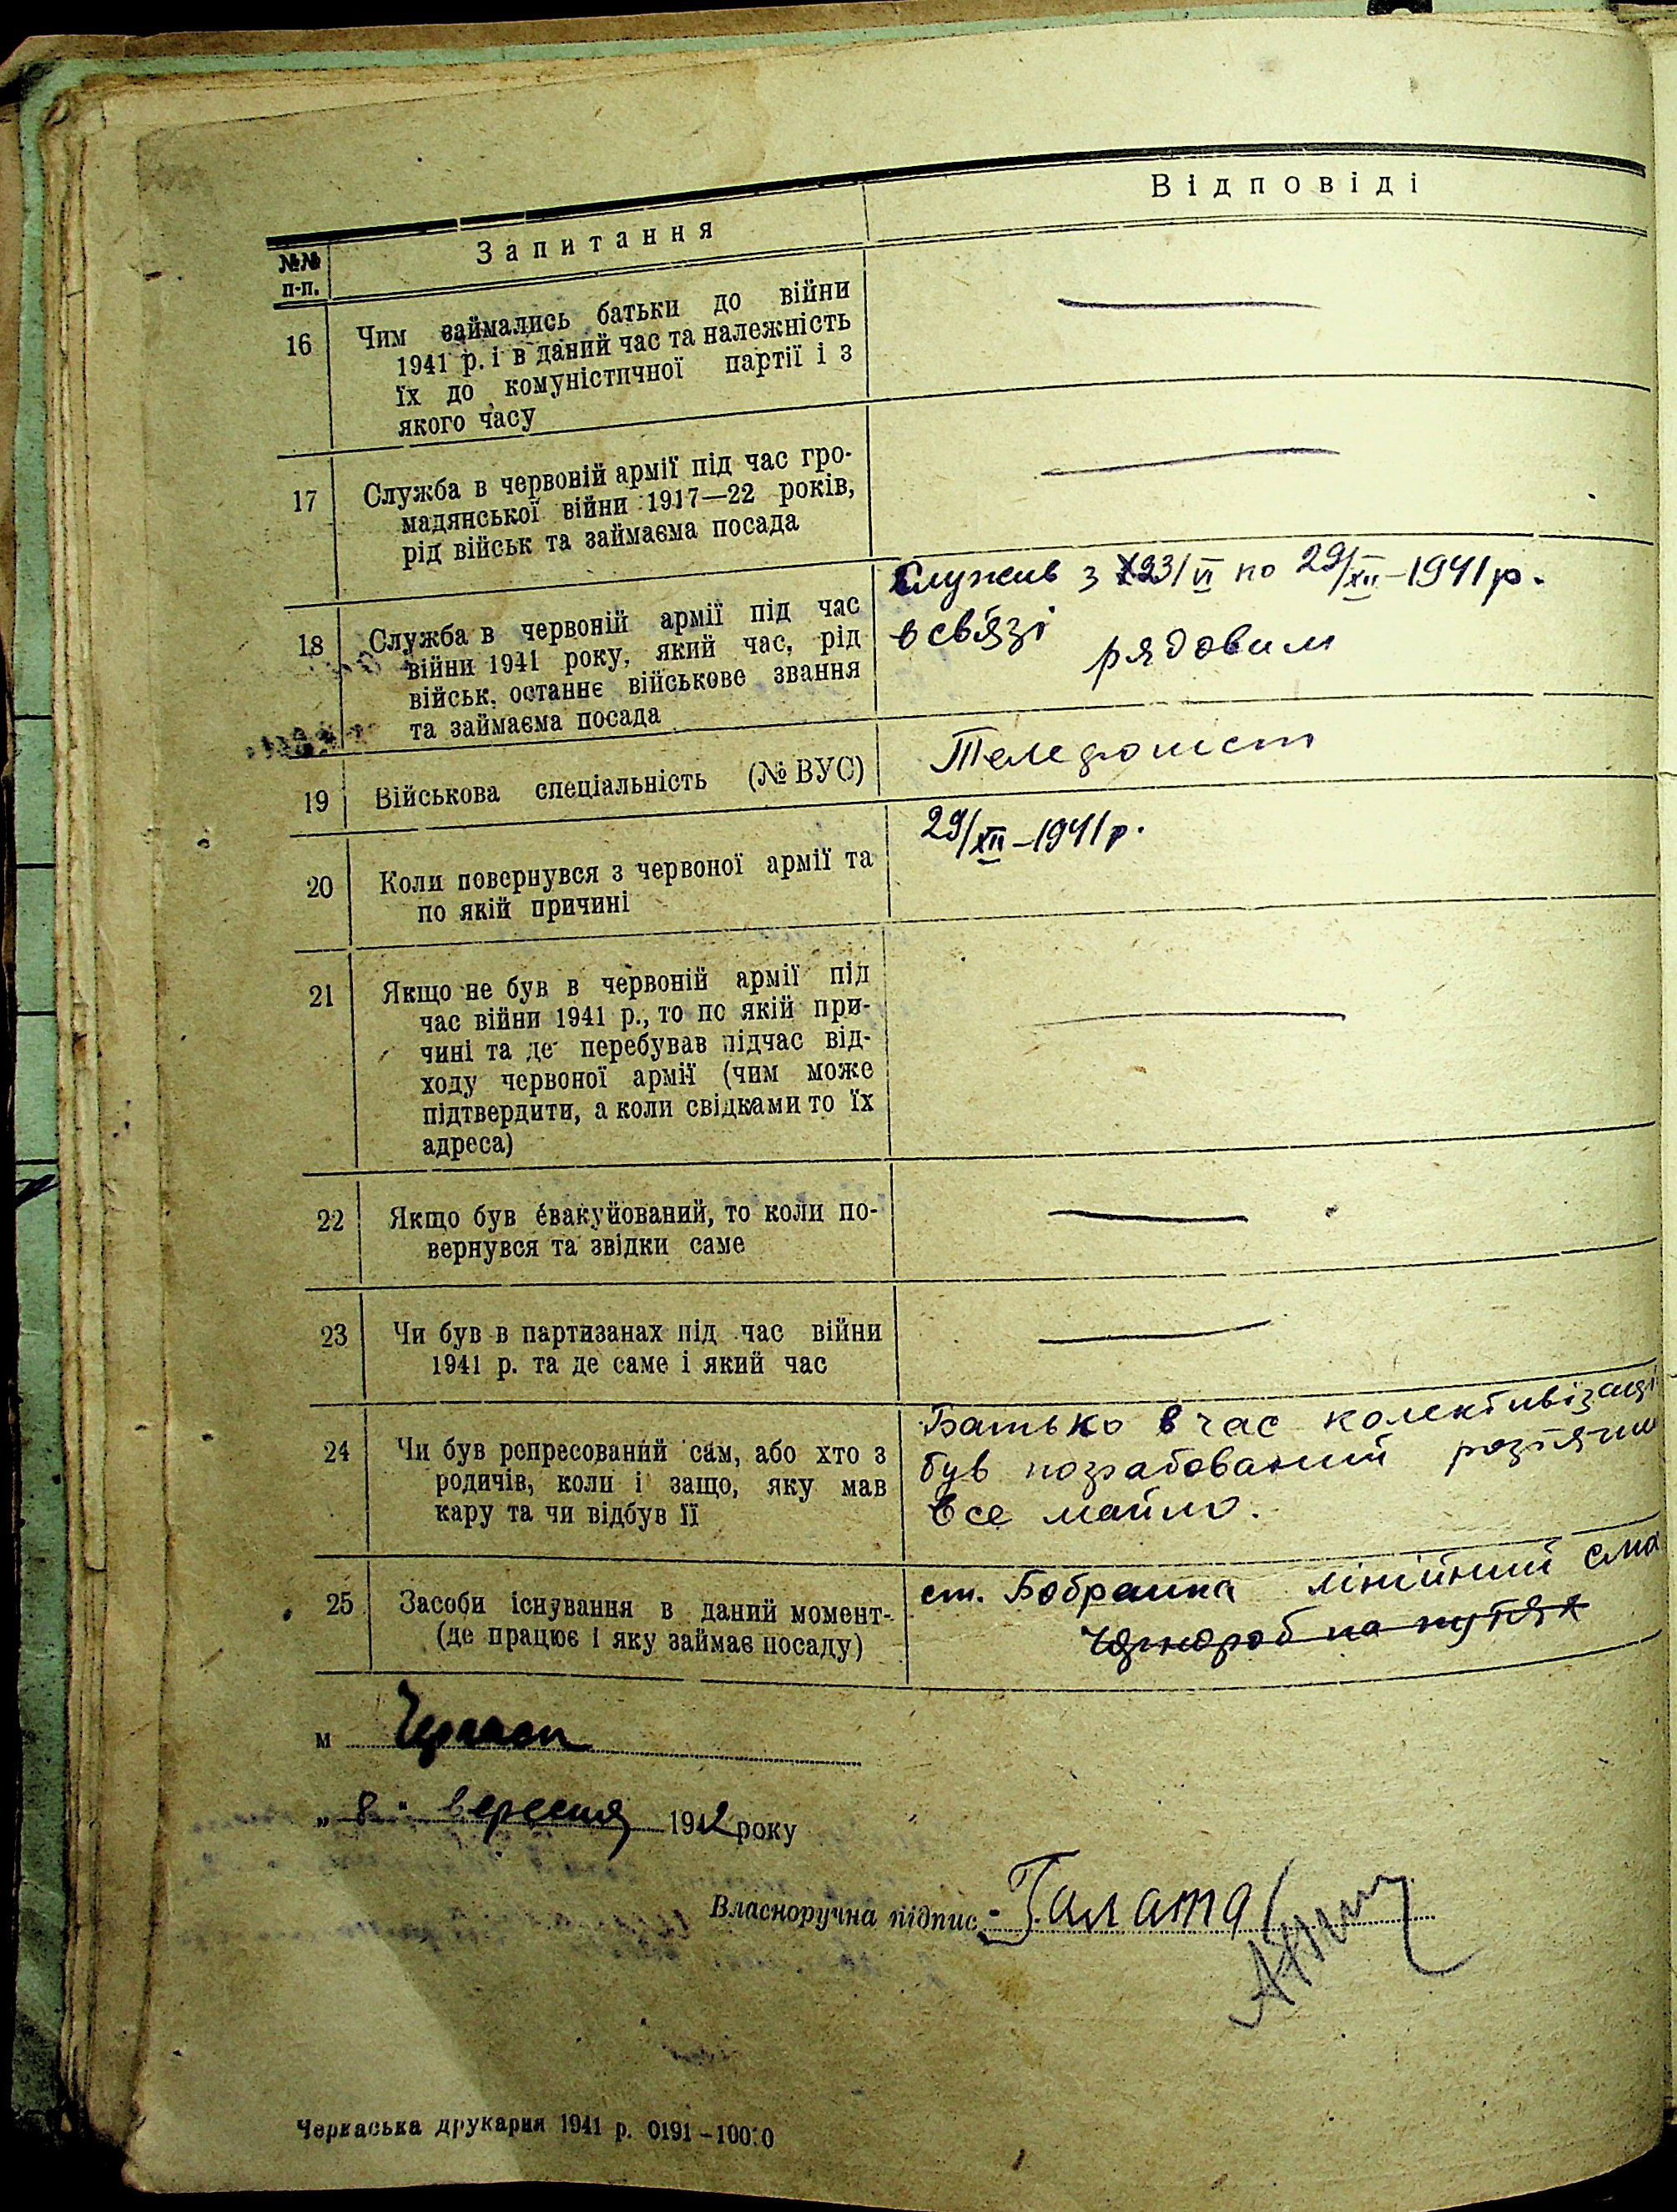 Відповіді
№№ п-п. Запитання
16 Чим займались батьки до війни
1941 р. і в даний час та належність
їх до комуністичної партії і з
якого часу
17 Служба в червоній армії під час гро-
мадянської війни 1917—22 років,
рід військ та займаєма посада
18 Служба в червоній армії під час
війни 1941 року, який час, рід
військ, останнє військове звання
та займаєма посада
Служив з 23/VI по 29/XII–1941 р.
в свʼязі рядовим
19 Військова спеціальність (№ ВУС)
Телефоніст
20 Коли повернувся з червоної армії та
по якій причині
29/XII–1941 р.
21 Якщо не був в червоній армії під
час війни 1941 р., то по якій при-
чині та де перебував підчас від-
ходу червоної армії (чим може
підтвердити, а коли свідками то їх
адреса)
22 Якщо був евакуйований, то коли по-
вернувся та звідки саме
23 Чи був в партизанах під час війни
1941 р. та де саме і який час
24 Чи був репресований сам, або хто з
родичів, коли і защо, яку мав
кару та чи відбув її
Батько в час колективізаці
був пограбований розтягли
все майно.
25 Засоби існування в даний момент-
(де працює і яку займає посаду)
ст. Бобринка лінійний
Чорнороб на путях
м Черкаси
„ 8 " вересня 1942 року
Власноручна підпис Галата
Черкаська друкарня 1941 р. 0191–10000